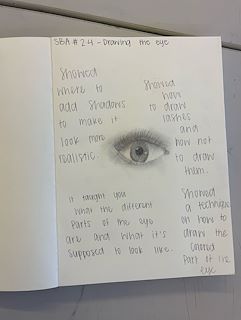 SBA #24 - Drawing the eye
Showed
where to
add shadows
to make it
look more
realistic.
Showed
how
to draw
lashes
and
how not
to draw
them.
it taught you
what the different
parts of the eye
are and what it's
supposed to look like.
Showed
a technique
on how to
draw the
colored
part of the
eye